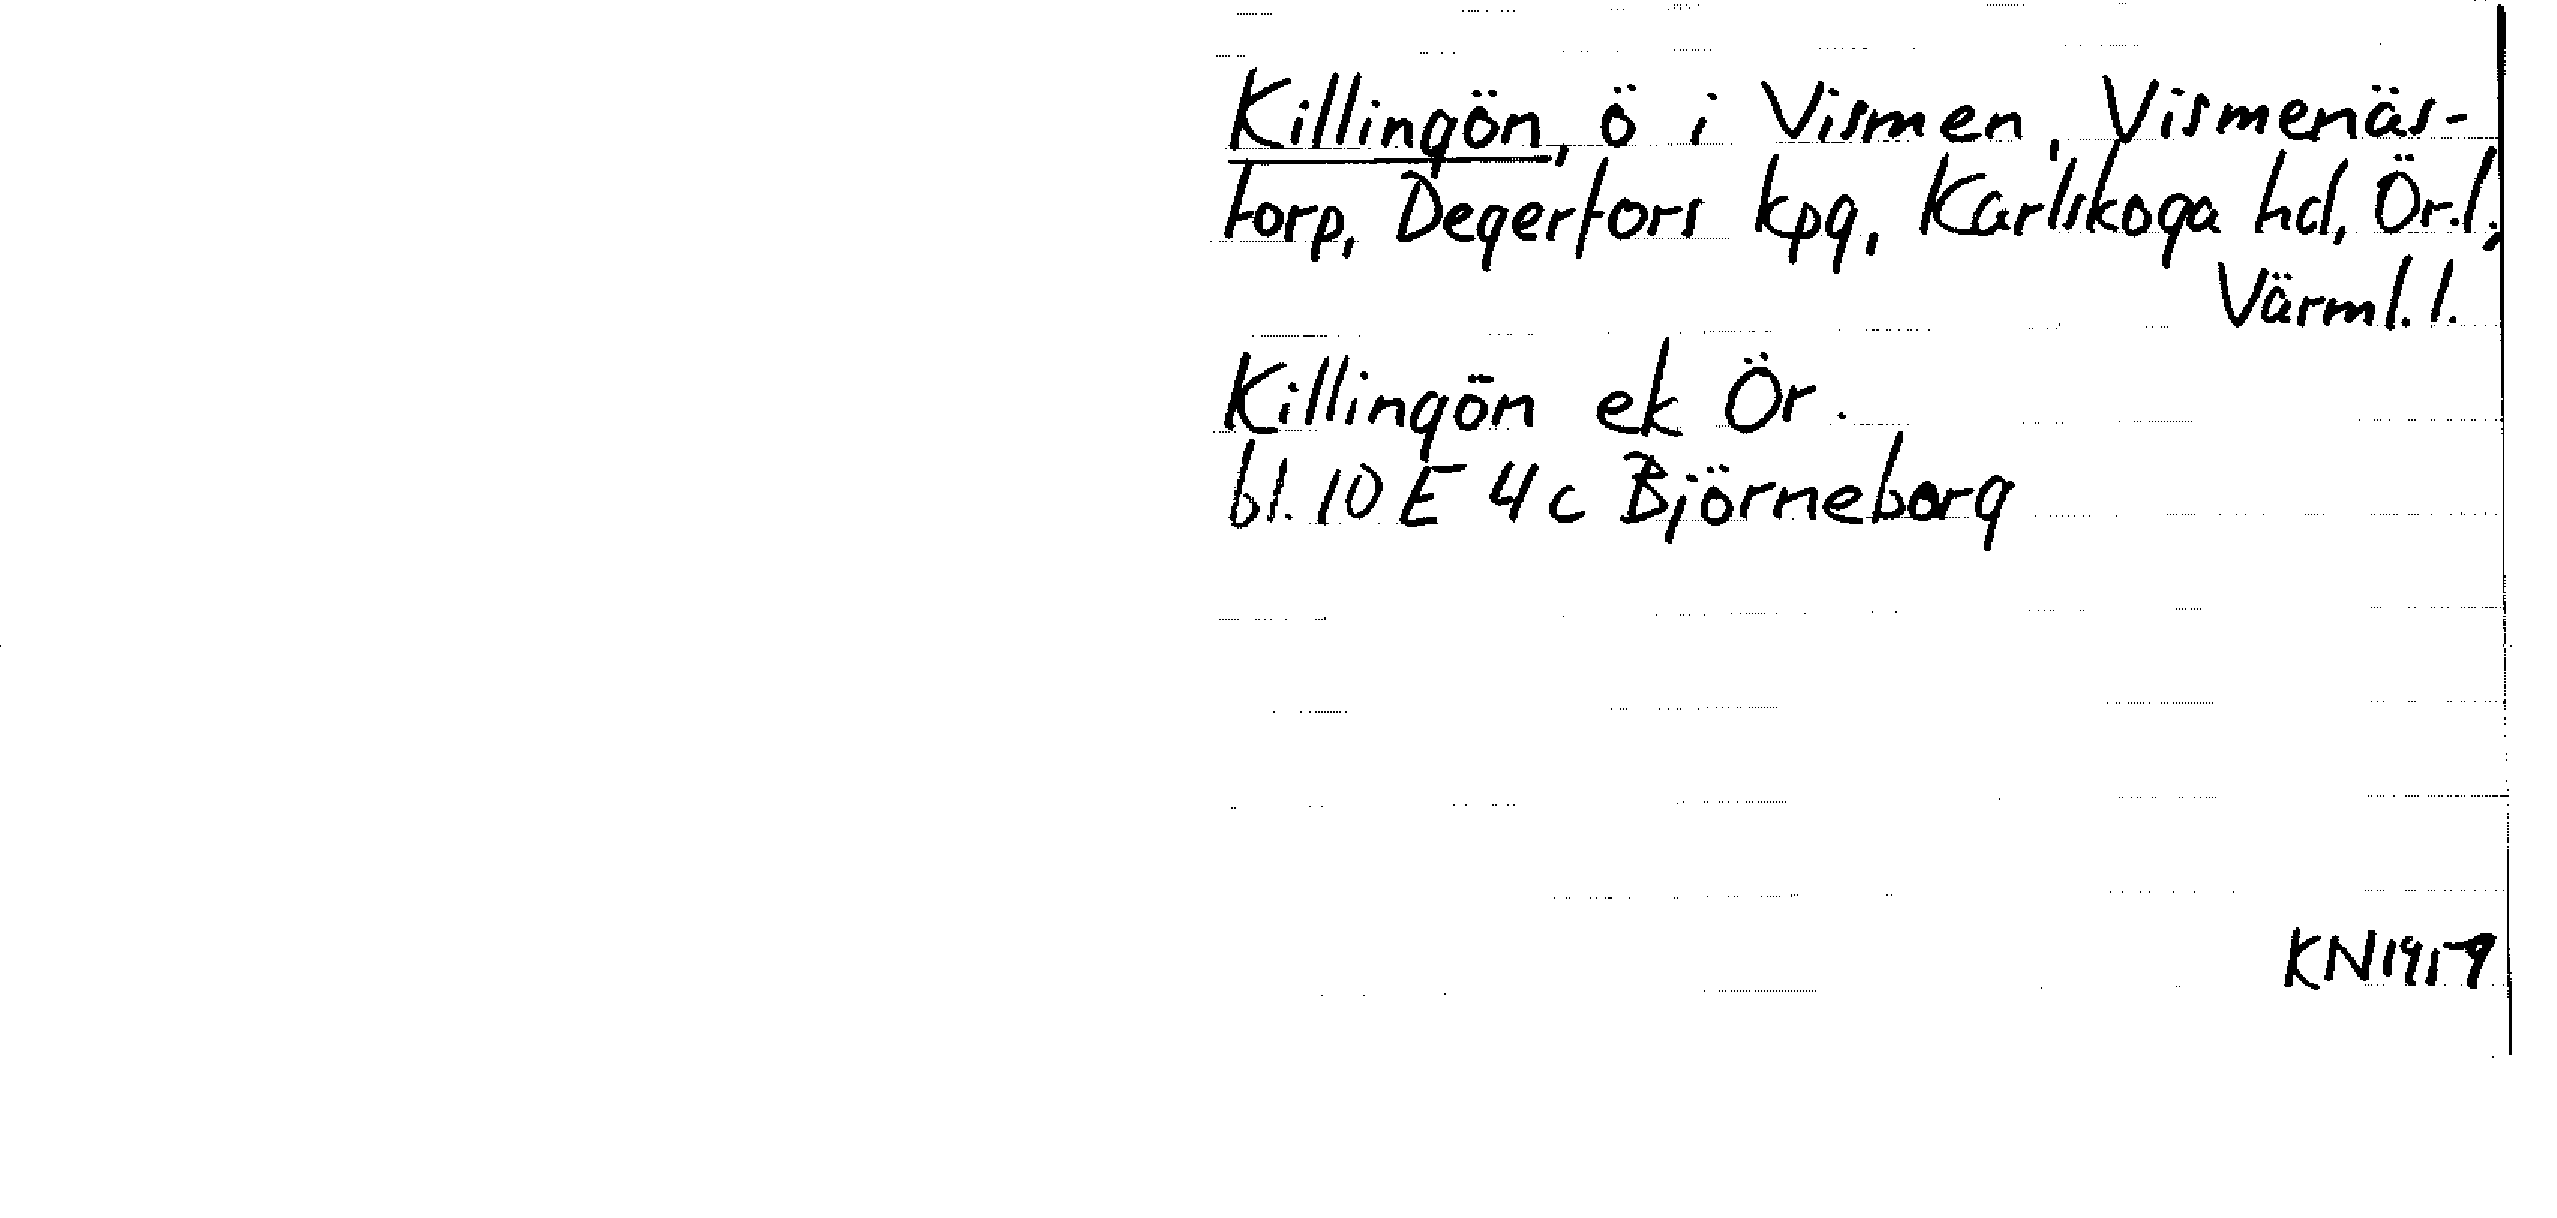 Killingön, ö i Vismen, Vismenäs-
torp, Degerfors kpg, Karlskoga hd, Ör.l;
Värml. l.
Killingön ek Ör.
bl. 10 E 4 c Björneborg
KN1959